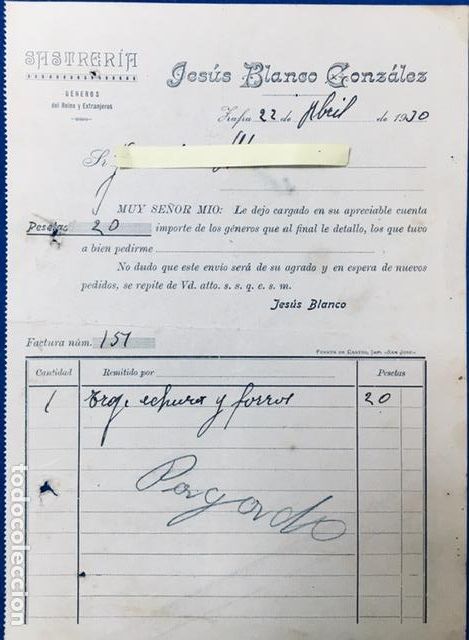 SASTRERÍA
GÉNEROS
del Reino y Extranjeros
Jesús Blanco González
Zafra 22 de Abril de 1930
Sr.
MUY SEÑOR MIO: Le dejo cargado en su apreciable cuenta
Pesetas 20 importe de los géneros que al final le detallo, los que tuvo
a bien pedirme
No dudo que este envío será de su agrado y en espera de nuevos
pedidos, se repite de Vd. atto. s. s. q. e. s. m.
Jesús Blanco
Factura núm. 151
FUENTE DE CANTOS, IMP. «SAN JOSÉ»
Cantidad Remitido por Pesetas
1 y forros 20
Pagado
todocoleccion